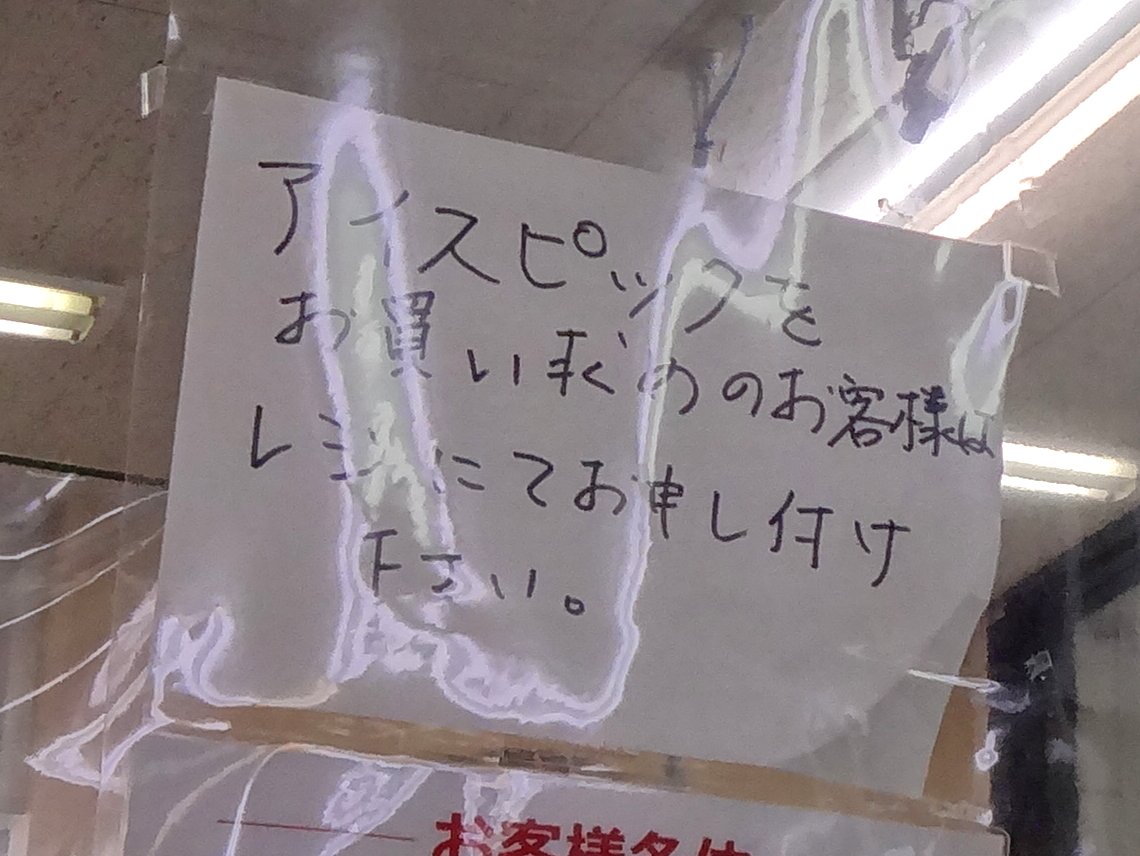 アイスピックを
お買い求めのお客様は
レジにてお申し付け
下さい。
お客様各位